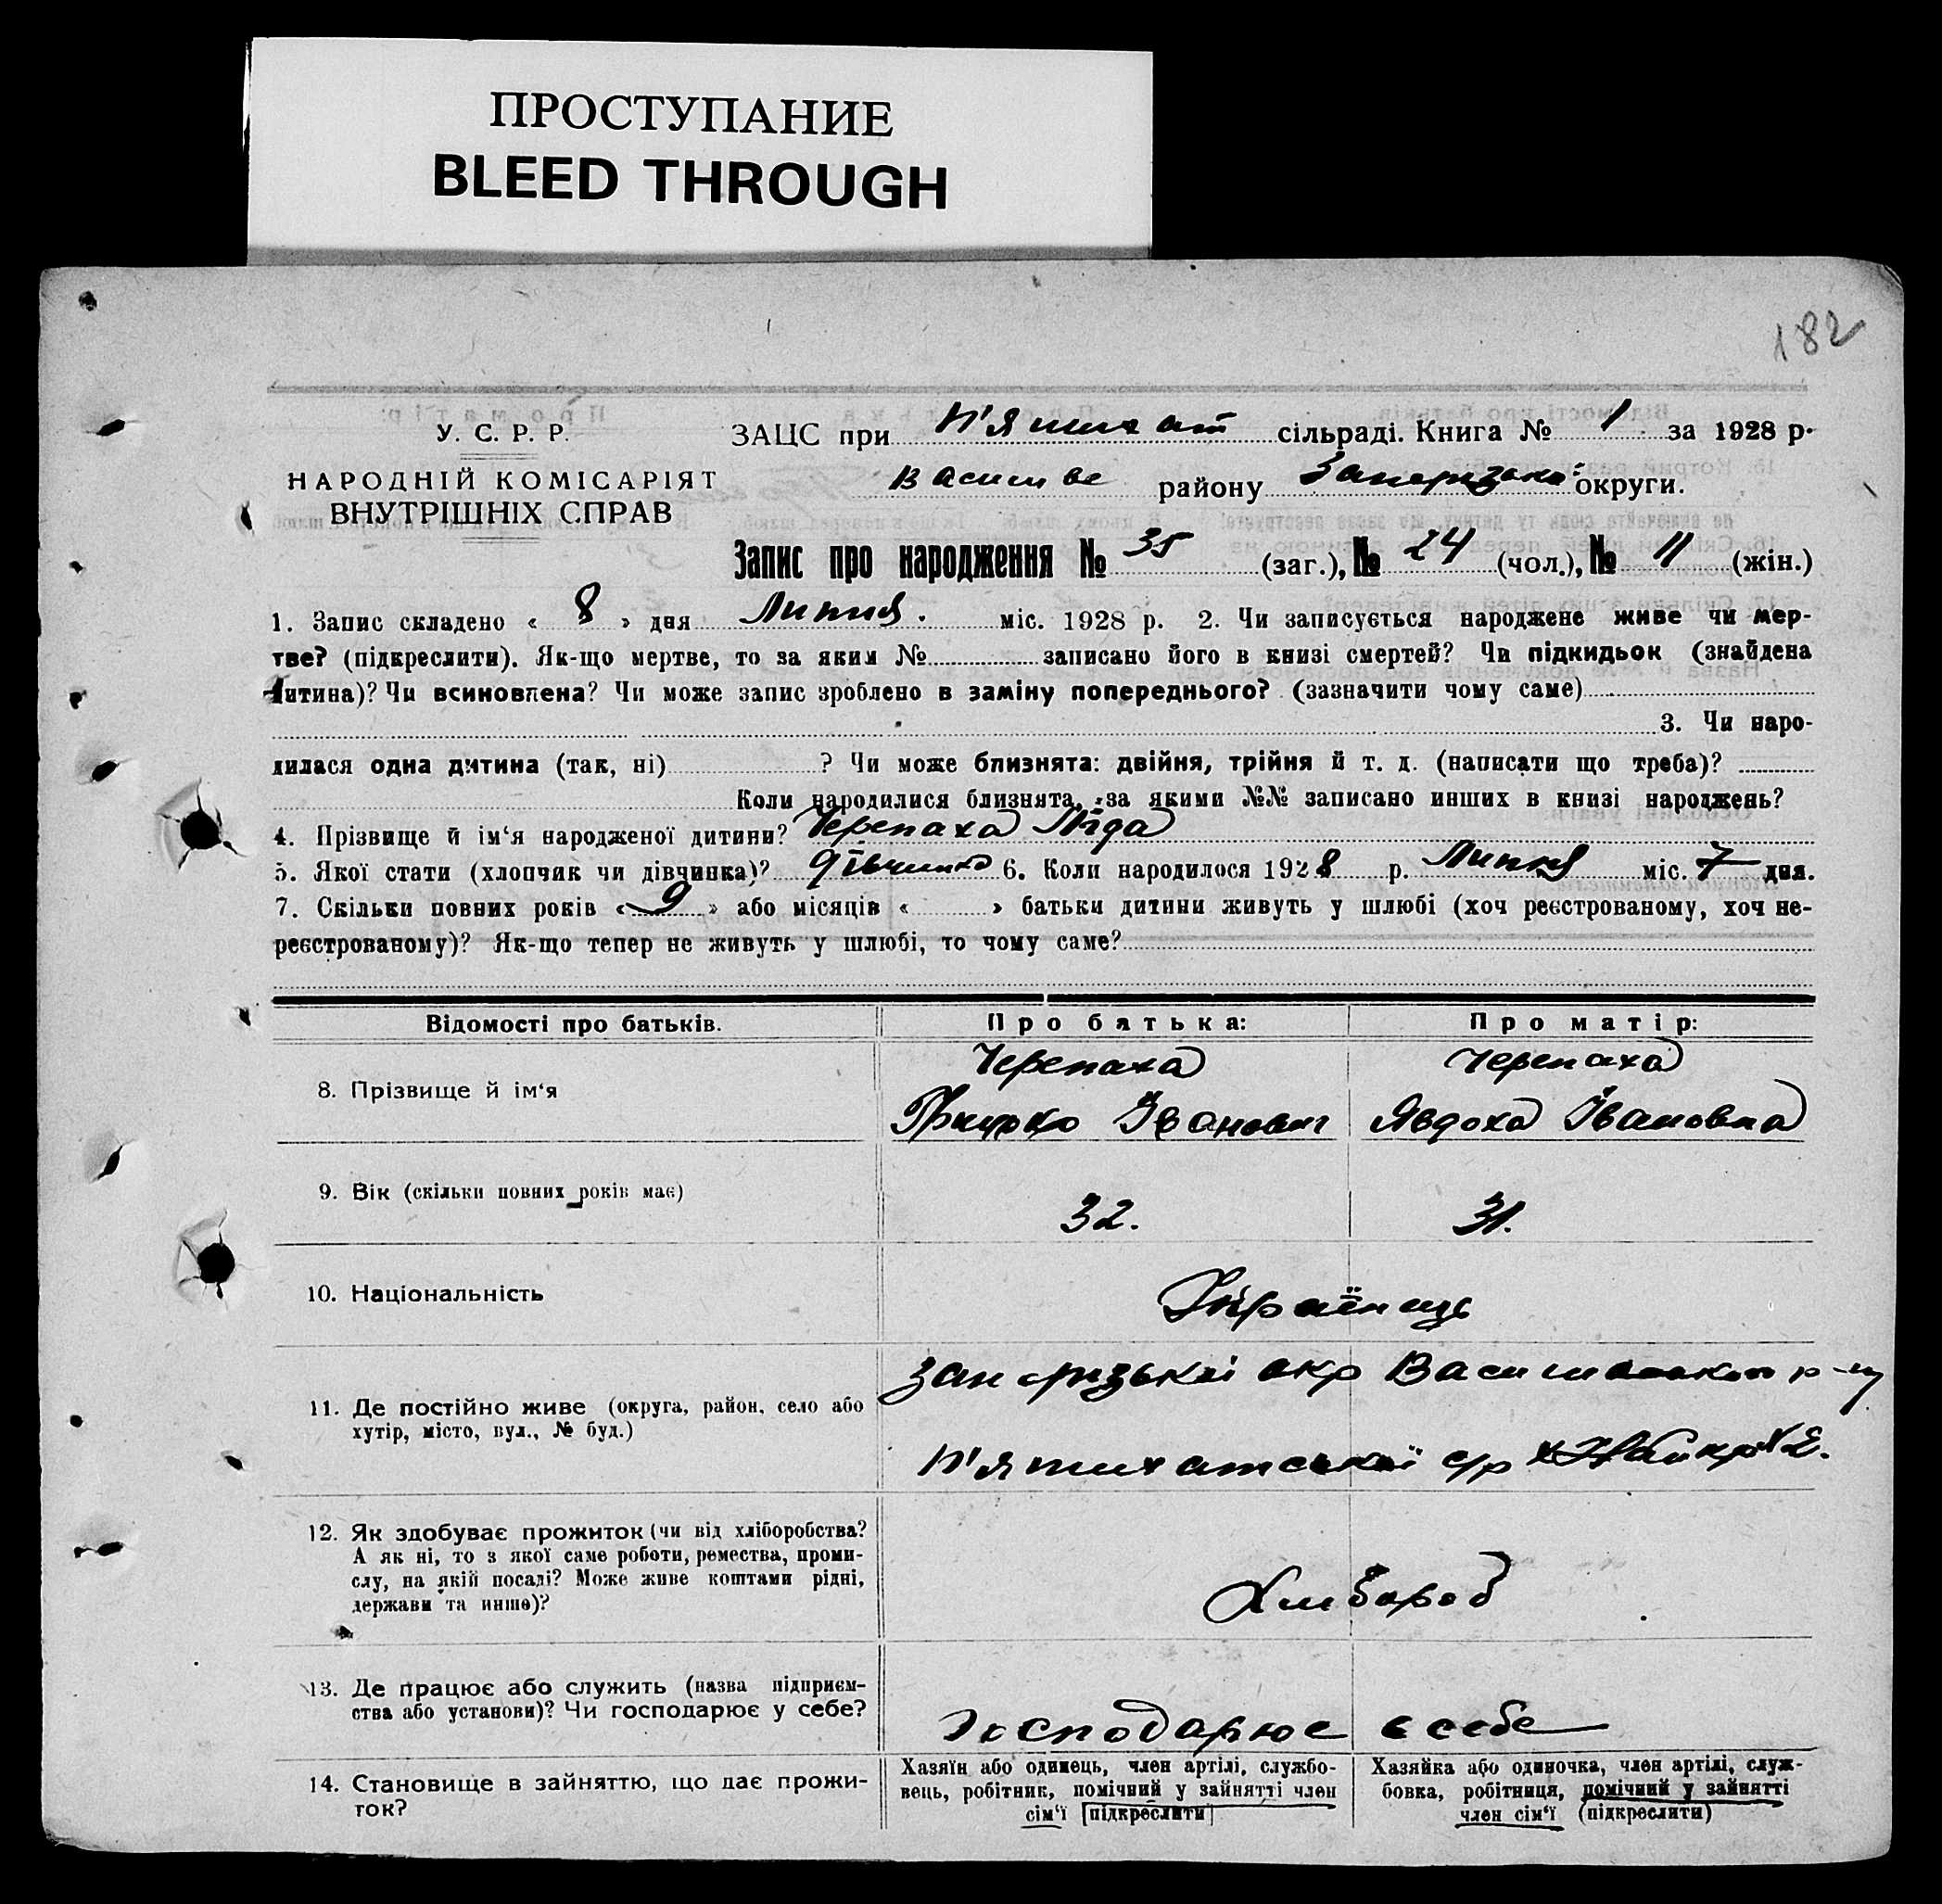 ПРОСТУПАНИЕ
BLEED THROUGH
182
У. С. Р. Р.
НАРОДНІЙ КОМІСАРІЯТ
ВНУТРІШНІХ СПРАВ
ЗАЦС при П'ятихат сільраді. Книга № 1 за 1928 р.
Васильве району Запоризької округи.
Запис про народження № 35 (заг.), № 24 (чол.), № 11 (жін.)
1. Запис складено « 8 » дня Липня. міс. 1928 р. 2. Чи записується народжене живе чи мер-
тве? (підкреслити). Як-що мертве, то за яким № записано його в книзі смертей? Чи підкидьок (знайдена
дитина)? Чи всиновлена? Чи може запис зроблено в заміну попереднього? (зазначити чому саме)
3. Чи наро-
дилася одна дитина (так, ні) ? Чи може близнята: двійня, трійня й т. д. (написати що треба)?
Коли народилися близнята, за якими №№ записано инших в книзі народжень?
4. Прізвище й ім‘я народженої дитини? Черепаха Ліда
5. Якої стати (хлопчик чи дівчинка)? дівчинка 6. Коли народилося 1928 р. Липня міс. 7 дня.
7. Скільки повних років « 9 » або місяців « » батьки дитини живуть у шлюбі (хоч реєстрованому, хоч не-
реєстрованому)? Як-що тепер не живуть у шлюбі, то чому саме?
Відомості про батьків. Про батька: Про матір:
8. Прізвище й ім‘я
Черепаха
Грицько Іванович
Черепаха
Явдоха Івановна
9. Вік (скільки повних років має) 32. 31.
10. Національність Українць
11. Де постійно живе (округа, район, село або
хутір, місто, вул., № буд.)
Запоризькій окр Васильвськом р-ну
П'ятихатської с/р
12. Як здобуває прожиток (чи від хліборобства?
А як ні, то з якої саме роботи, ремества, проми-
слу, на якій посаді? Може живе коштами рідні,
держави та инше)?
Хлибороб
13. Де працює або служить (назва підприєм-
ства або установи)? Чи господарює у себе?
Господарює в себе
14. Становище в зайняттю, що дає прожи-
ток?
Хазяїн або одинець, член артілі, службо-
вець, робітник, помічний у зайнятті член
сім‘ї (підкреслити)
Хазяйка або одиночка, член артілі, служ-
бовка, робітниця, помічний у зайнятті
член сім‘ї (підкреслити)